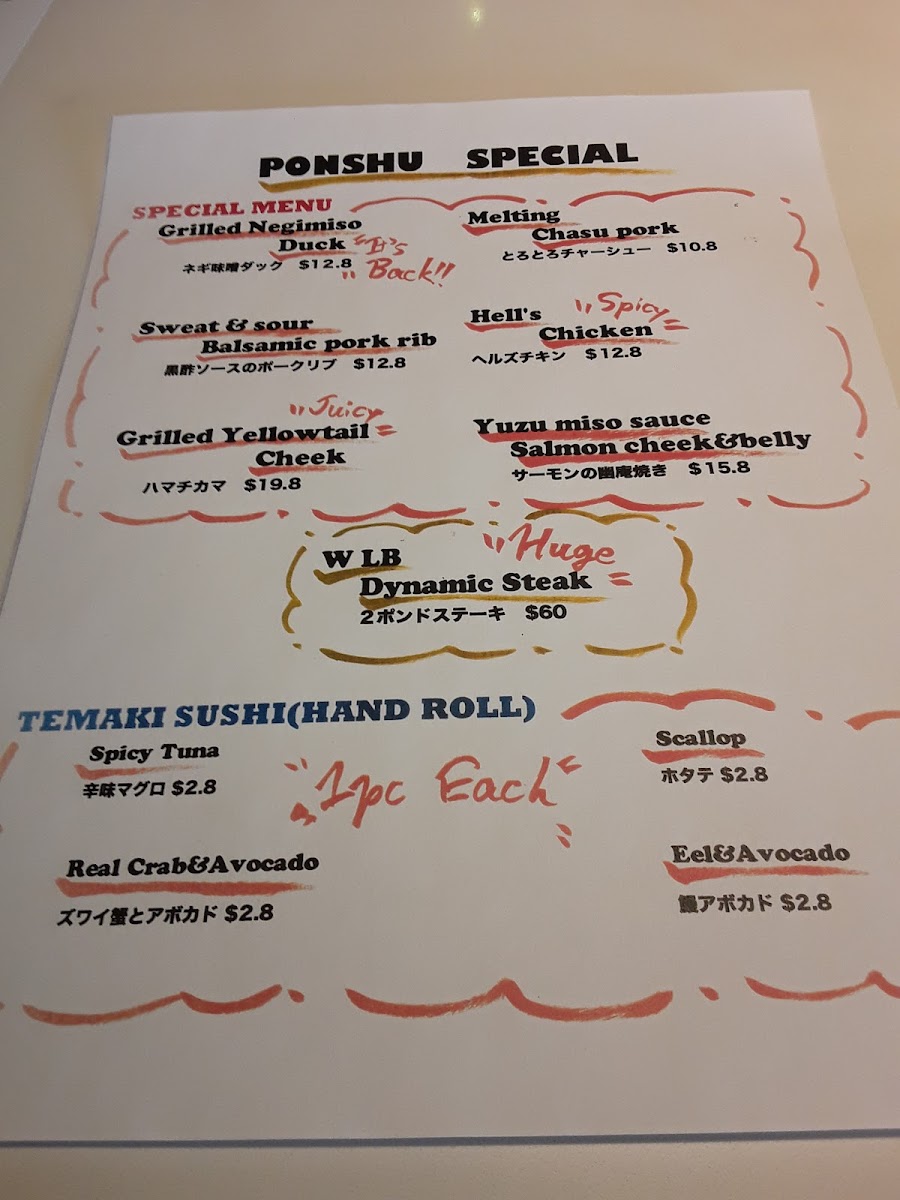 PONSHU SPECIAL
SPECIAL MENU
Grilled Negimiso
Duck
"It's
Back!!
ネギ味噌ダック $12.8
Melting
Chasu pork
とろとろチャーシュー $10.8
Sweat & sour
Balsamic pork rib
黒酢ソースのポークリブ $12.8
Hell's
Spicy
Chicken
ヘルズチキン $12.8
Juicy
Grilled Yellowtail
Cheek
ハマチカマ $19.8
Yuzu miso sauce
Salmon cheek&belly
サーモンの幽庵焼き $15.8
W LB
Huge
Dynamic Steak
2ポンドステーキ $60
TEMAKI SUSHI(HAND ROLL)
Spicy Tuna
辛味マグロ $2.8
"1pc Each"
Scallop
ホタテ $2.8
Real Crab&Avocado
ズワイ蟹とアボカド $2.8
Eel&Avocado
鰻アボカド $2.8